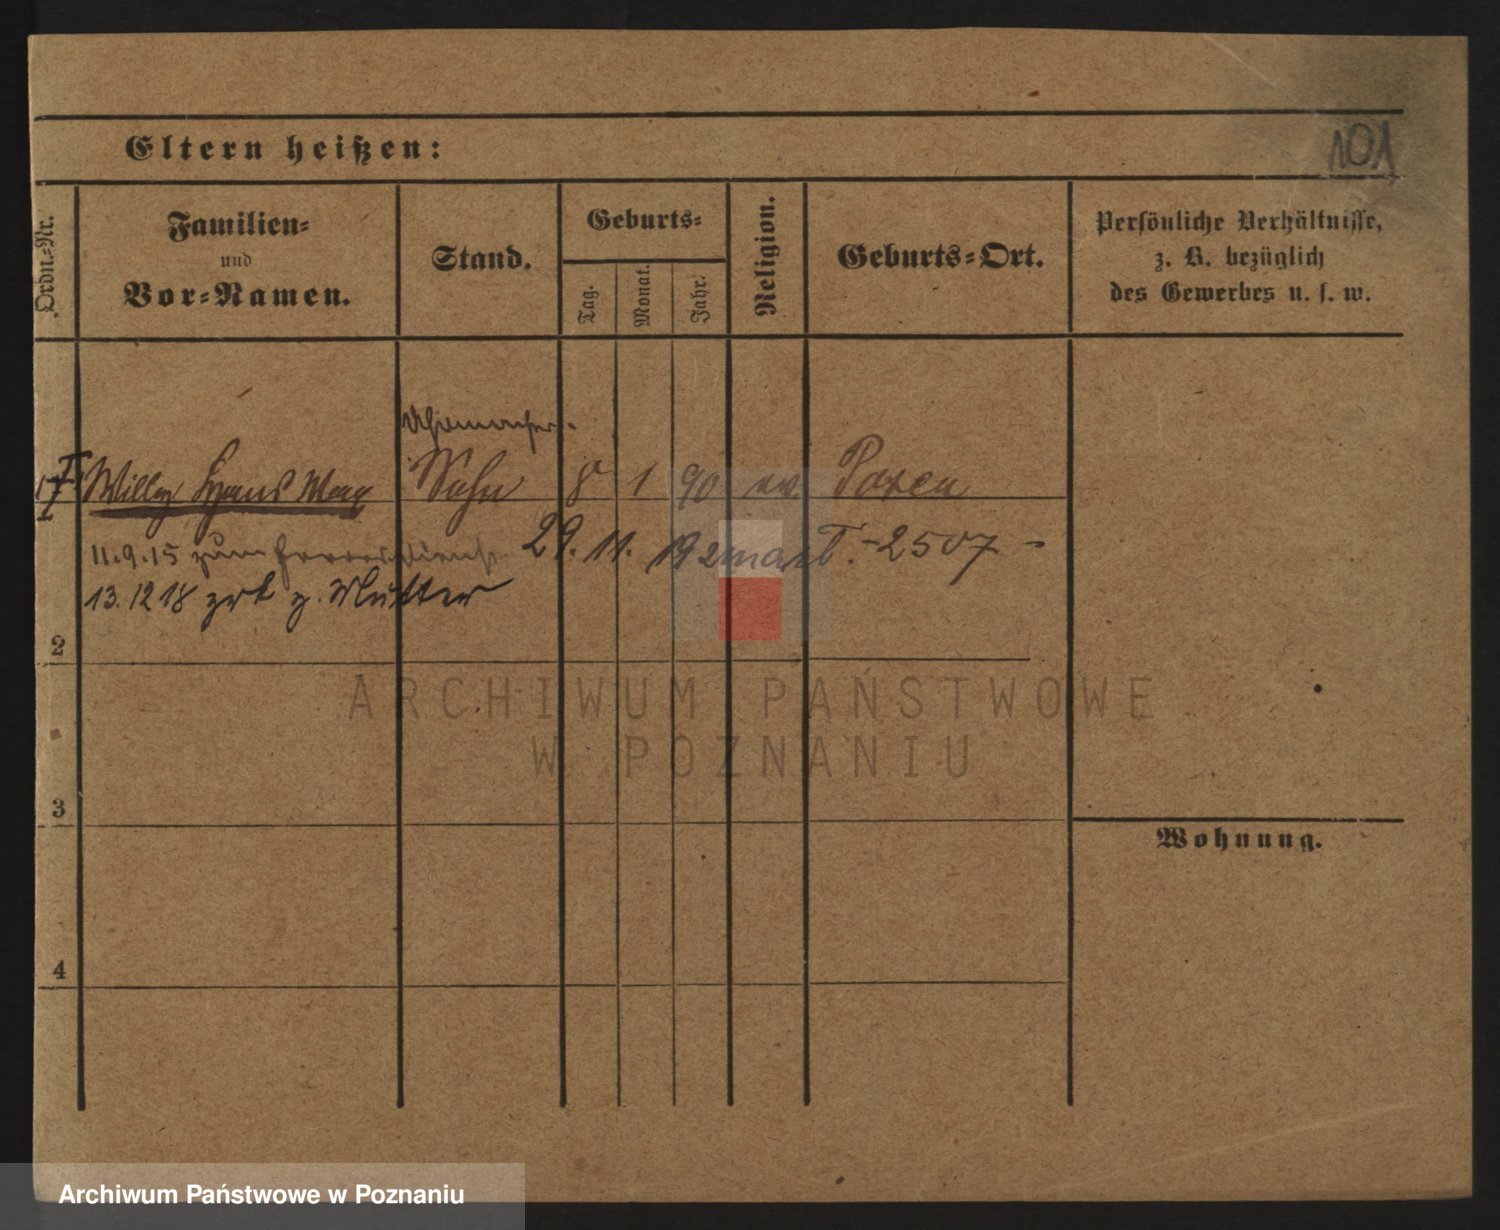 101
Eltern heißen:
Ordn.-Nr.
Familien-
und
Vor-Namen.
Stand.
Geburts-
Tag.
Monat.
Jahr.
Religion.
Geburts-Ort.
Persönliche Verhältnisse,
z. B. bezüglich
des Gewerbes u. s. w.
Uhrmacher
1 Willy Hans Max Sohn 8 1 90 ev. Posen
29. 11. 19 T. - 2507 -
11.9.15 zum Heeresdienst
13.12 18 zrk z. Mutter
2
3
4
Wohnung.
ARCHIWUM PAŃSTWOWE
W POZNANIU
Archiwum Państwowe w Poznaniu